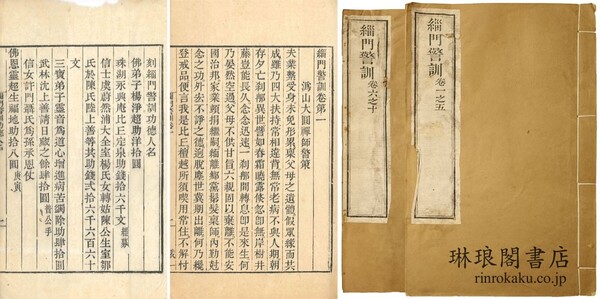 緇門警訓 卷一之五
緇門警訓 卷六之十
緇門警訓卷第一
溈山大圓禪師警策
夫業繫受身未免形累稟父母之遺體假眾緣而共
成雖乃四大扶持常相違背無常老病不與人期朝
存夕亡剎那異世譬如春霜曉露倏忽即無岸樹井
藤豈能長久念念迅速一剎那間轉息即是來生何
乃晏然空過父母不供甘旨六親固以棄離不能安
國治邦家業頓捐繼嗣緬離鄉黨剃髮稟師內勤剋
念之功外弘不諍之德迥脫塵世冀期出離何乃纔
登戒品便言我是比丘檀越所須喫用常住不解忖
刻緇門警訓功德人名
佛弟子楊淨超助洋拾圓
珠湖永興庵比丘定泉助錢拾千文 經募
信士虞蔚然浦大全室楊氏女轉姑陳公生室鄒
氏於陳氏陸上善等共助錢弍拾六千六百六十
文
三寶弟子靈音為道心增進病苦調除助肆拾圓
武林沈上善請日歲之餘肆拾圓 普公手
信女許門馮氏為孫承恩仗
佛恩靈超生福地助拾八圓 庚寅
琳琅閣書店
rinrokaku.co.jp